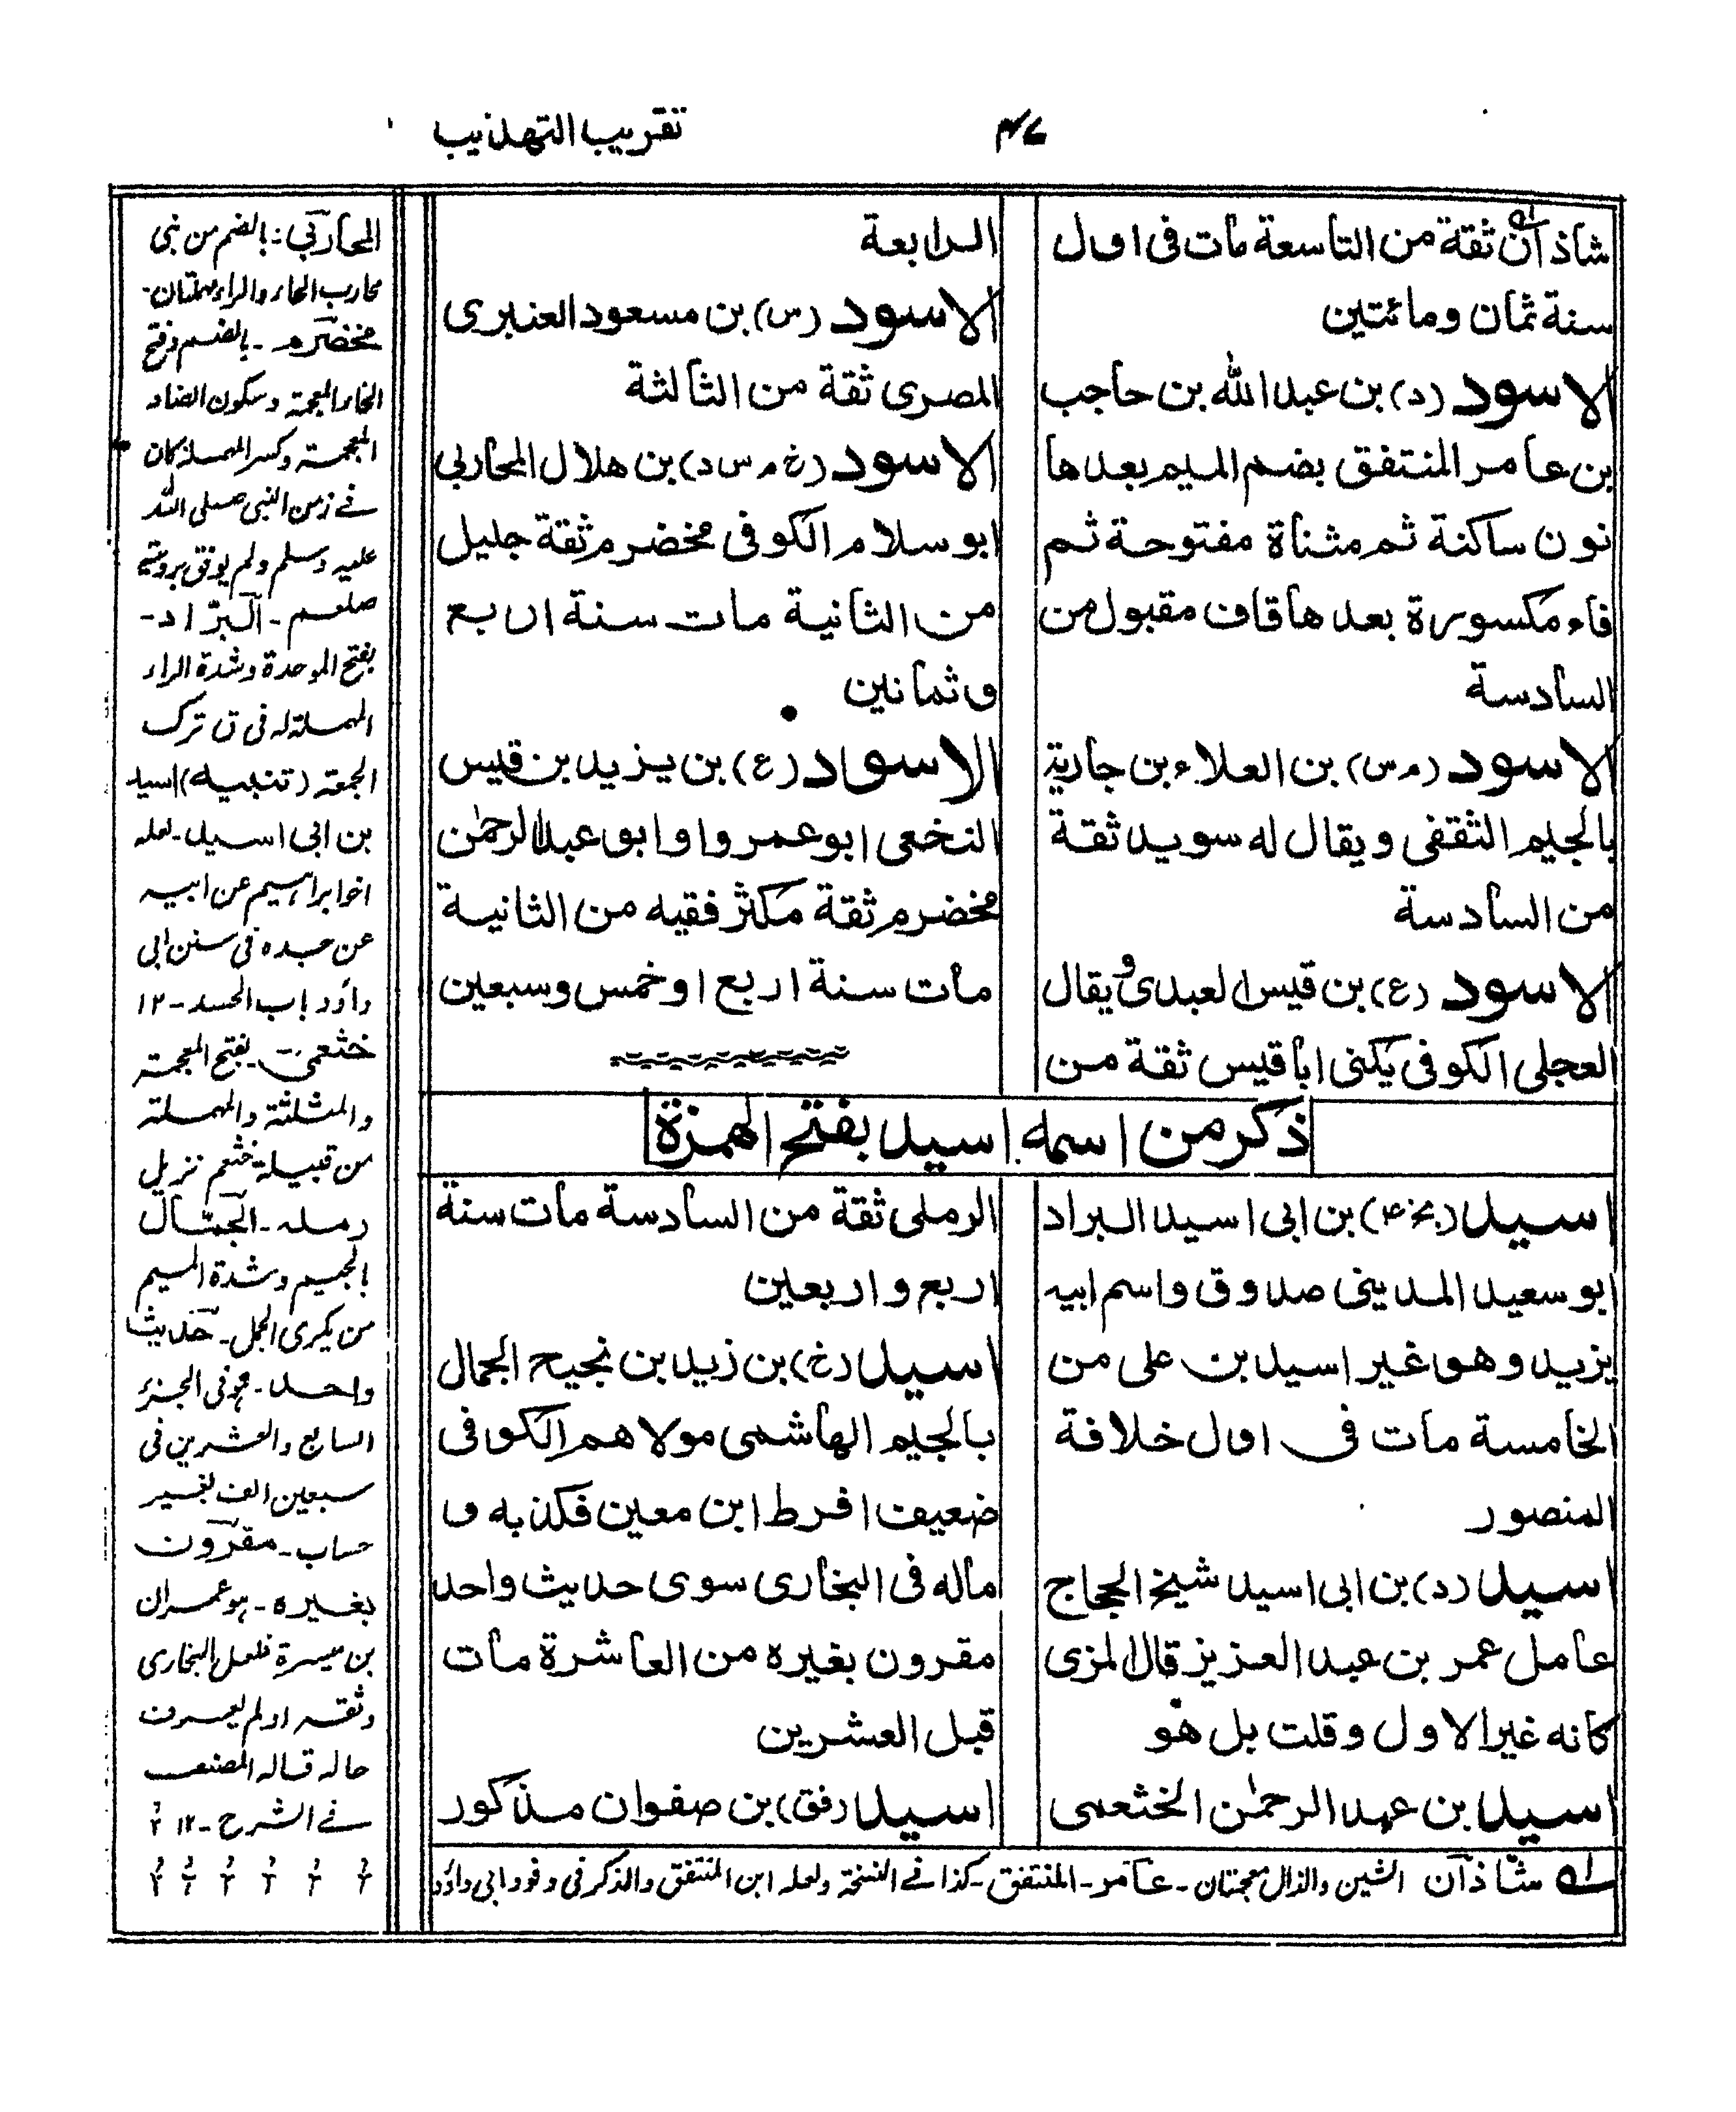 ٤٧
تقريب التهذيب
شاذان ثقة من التاسعة مات فى اول
سنة ثمان ومائتين
الاسود (د) بن عبد الله بن حاجب
بن عامر المنتفق بضم الميم بعدها
نون ساكنة ثم مثناة مفتوحة ثم
فاء مكسورة بعدها قاف مقبول من
السادسة
الاسود (م س) بن العلاء بن جارية
بالجيم الثقفى ويقال له سويد ثقة
من السادسة
الاسود (ع) بن قيس العبدى ويقال
العجلى الكوفى يكنى ابا قيس ثقة من
الرابعة
الاسود (س) بن مسعود العنبرى
المصرى ثقة من الثالثة
الاسود (خ م س د) بن هلال المحاربى
ابو سلام الكوفى مخضرم ثقة جليل
من الثانية مات سنة اربع
وثمانين
الاسواد (ع) بن يزيد بن قيس
النخعى ابو عمرو او ابو عبد الرحمٰن
مخضرم ثقة مكثر فقيه من الثانية
مات سنة اربع او خمس وسبعين
ذكر من اسمه اسيد بفتح الهمزة
اسيد (بخ ۴) بن ابى اسيد البراد
ابو سعيد المدينى صدوق واسم ابيه
يزيد وهو غير اسيد بن على من
الخامسة مات فى اول خلافة
المنصور
اسيد (د) بن ابى اسيد شيخ الحجاج
عامل عمر بن عبد العزيز قال المزى
كانه غير الاول وقلت بل هو
اسيد بن عبد الرحمٰن الخثعمى
الرملى ثقة من السادسة مات سنة
اربع و اربعين
اسيد (خ) بن زيد بن نجيح الجمال
بالجيم الهاشمى مولاهم الكوفى
ضعيف افرط ابن معين فكذبه و
ماله فى البخارى سوى حديث واحد
مقرون بغيره من العاشرة مات
قبل العشرين
اسيد (فق) بن صفوان مذكور
المحاربى: بالضم من بنى
محارب الحاء والراء مهملتان.
مخضرم - بالضم وفتح
الخاء المعجمة وسكون الضاد
المعجمة وكسر المهملة كان
فے زمن النبى صلى الله
عليه وسلم ولم يوفق برويته
صلعم - البرّاد -
بفتح الموحدة وشدة الراء
المهملة له فى ق ترك
الجمعة (تنبيه) اسيد
بن ابى اسيد - لعله
اخو ابراهيم عن ابيه
عن جده فى سنن ابى
داؤد باب الحسد - ١٢
خثعمى - بفتح المعجمة
والمثلثة والمهملة
من قبيلة خثعم نزيل
رمله - الجمّال
بالجيم وشدة الميم
من يكرى الجمل - حديث
واحد - هو فى الجزء
السابع والعشرين فى
سبعين الف بغير
حساب - مقرون
بغيره - هو عمران
بن ميسرة فلعل البخارى
وثقه او لم يعرف
حاله قاله المصنف
فے الشرح - ١٢
له شاذان الشين والذال معجمتان - عامر - المنتفق - كذا فے النسخة ولعله ابن المنتفق والذكر فى وفود ابى داؤد